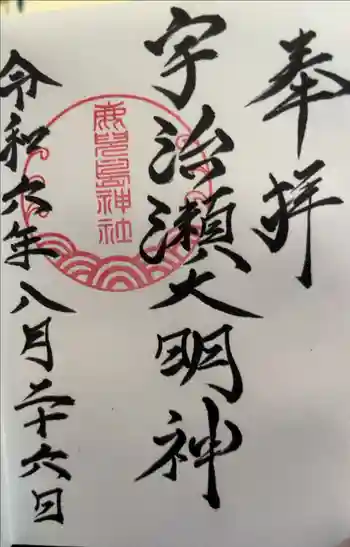 奉拝
宇治瀬大明神
鹿児島神社
令和六年八月二十六日